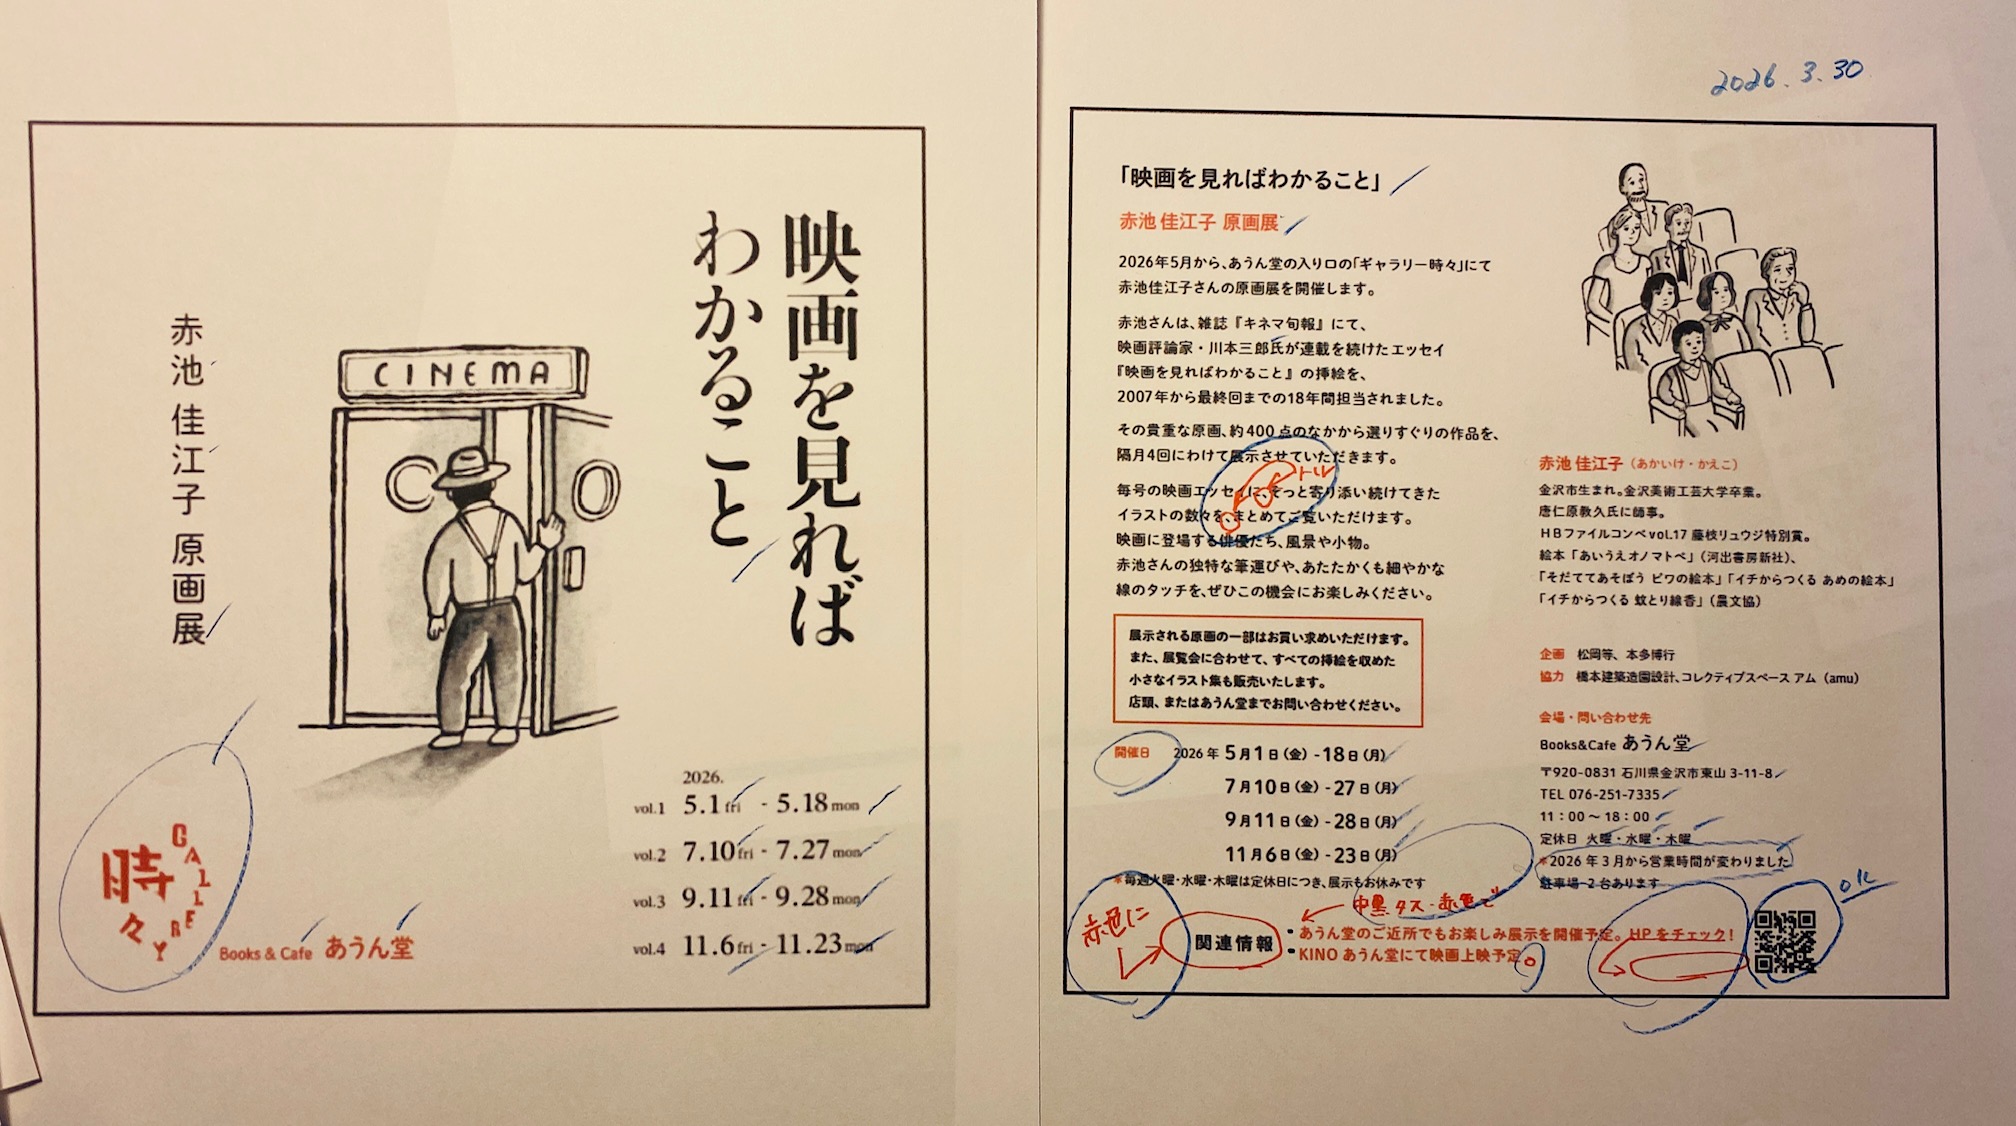 映画を見れば
わかること
赤池 佳江子 原画展
CINEMA
2026.
vol.1 5.1 fri - 5.18 mon
vol.2 7.10 fri - 7.27 mon
vol.3 9.11 fri - 9.28 mon
vol.4 11.6 fri - 11.23 mon
時々
GALLERY
Books & Cafe あうん堂
2026.3.30
「映画を見ればわかること」
赤池 佳江子 原画展
2026年5月から、あうん堂の入り口の「ギャラリー時々」にて
赤池佳江子さんの原画展を開催します。
赤池さんは、雑誌『キネマ旬報』にて、
映画評論家・川本三郎氏が連載を続けたエッセイ
『映画を見ればわかること』の挿絵を、
2007年から最終回までの18年間担当されました。
その貴重な原画、約400点のなかから選りすぐりの作品を、
隔月4回にわけて展示させていただきます。
トル
毎号の映画エッセイに、そっと寄り添い続けてきた
イラストの数々を、まとめてご覧いただけます。
映画に登場する俳優たち、風景や小物。
赤池さんの独特な筆運びや、あたたかくも細やかな
線のタッチを、ぜひこの機会にお楽しみください。
展示される原画の一部はお買い求めいただけます。
また、展覧会に合わせて、すべての挿絵を収めた
小さなイラスト集も販売いたします。
店頭、またはあうん堂までお問い合わせください。
開催日 2026年 5月1日(金) - 18日(月)
7月10日(金) - 27日(月)
9月11日(金) - 28日(月)
11月6日(金) - 23日(月)
*毎週火曜・水曜・木曜は定休日につき、展示もお休みです
中黒 タス - 赤色で
赤色に
関連情報
・あうん堂のご近所でもお楽しみ展示を開催予定。HPをチェック!
・KINO あうん堂にて映画上映予定。
赤池 佳江子(あかいけ・かえこ)
金沢市生まれ。金沢美術工芸大学卒業。
唐仁原教久氏に師事。
HBファイルコンペvol.17 藤枝リュウジ特別賞。
絵本「あいうえオノマトペ」(河出書房新社)、
「そだててあそぼう ビワの絵本」「イチからつくる あめの絵本」
「イチからつくる 蚊とり線香」(農文協)
企画 松岡等、本多博行
協力 橋本建築造園設計、コレクティブスペース アム(amu)
会場・問い合わせ先
Books&Cafe あうん堂
〒920-0831 石川県金沢市東山 3-11-8
TEL 076-251-7335
11:00～18:00
定休日 火曜・水曜・木曜
*2026年3月から営業時間が変わりました
駐車場 2台あります
OK